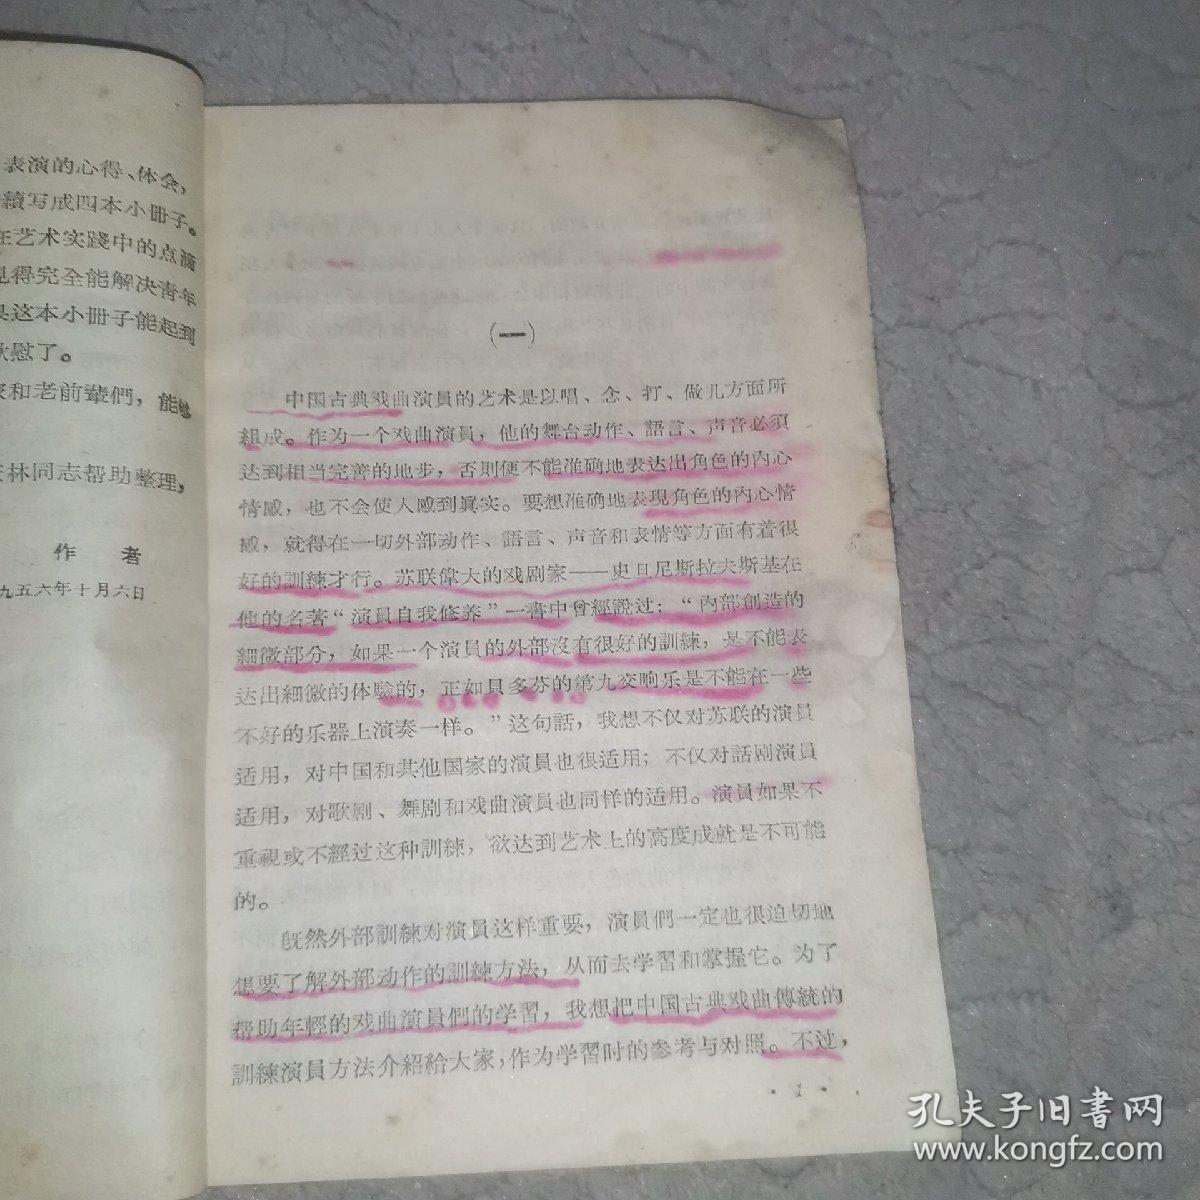 表演的心得、体会,
續写成四本小冊子。
在艺术实践中的点滴
見得完全能解决青年
果这本小冊子能起到
欣慰了。
家和老前輩們，能够
林同志帮助整理,
作 者
九五六年十月六日
(一)
中国古典戏曲演員的艺术是以唱、念、打、做几方面所
組成。作为一个戏曲演員，他的舞台动作、語言、声音必須
达到相当完善的地步，否則便不能准确地表达出角色的內心
情感，也不会使人感到眞实。要想准确地表現角色的內心情
感，就得在一切外部动作、語言、声音和表情等方面有着很
好的訓練才行。苏联偉大的戏剧家——史旦尼斯拉夫斯基在
他的名著“演員自我修养”一書中曾經說过：“內部創造的
細微部分，如果一个演員的外部沒有很好的訓練，是不能表
达出細微的体驗的，正如貝多芬的第九交响乐是不能在一些
不好的乐器上演奏一样。”这句話，我想不仅对苏联的演員
适用，对中国和其他国家的演員也很适用；不仅对話剧演員
适用，对歌剧、舞剧和戏曲演員也同样的适用。演員如果不
重視或不經过这种訓練，欲达到艺术上的高度成就是不可能
的。
旣然外部訓練对演員这样重要，演員們一定也很迫切地
想要了解外部动作的訓練方法，从而去学習和掌握它。为了
帮助年輕的戏曲演員們的学習，我想把中国古典戏曲傳統的
訓練演員方法介紹給大家，作为学習时的参考与对照。不过，
·1·
孔夫子旧書网
www.kongfz.com